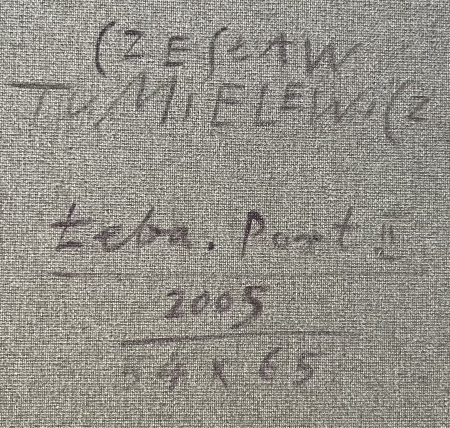 CZESŁAW
TUMIELEWICZ
Łeba. Port II
2005
54 x 65